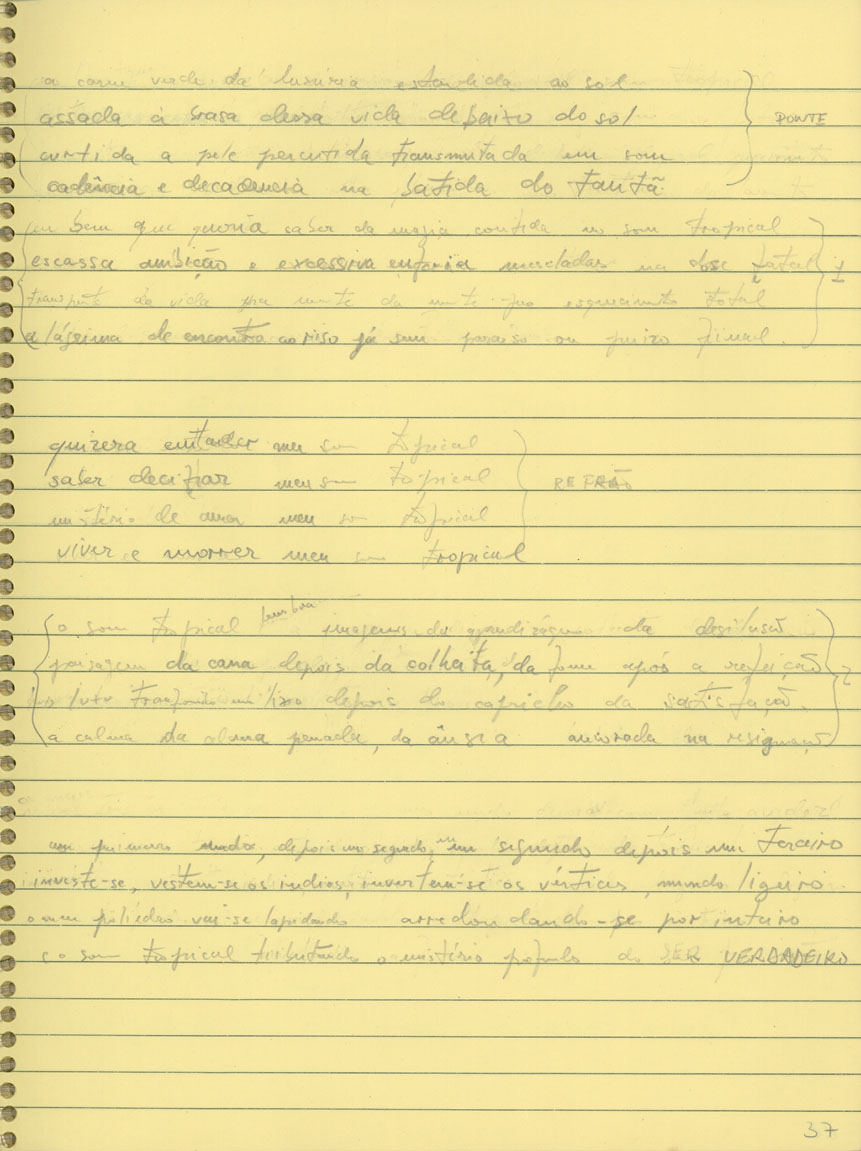 a carne verde da luxúria estendida ao sol
assada à brasa dessa vida debaixo do sol
PONTE
curtida a pele percutida transmutada em som
cadência e decadência na batida do tantã
eu bem que queria saber da magia contida no som tropical
escassa ambição e excessiva euforia mescladas na dose fatal
1
da vida pra morte da morte pro esquecimento total
a lágrima de encontro ao riso já sem paraíso ou juízo final.
quizera entender meu som tropical
saber decifrar meu som tropical
REFRÃO
mistério de amor meu som tropical
viver e morrer meu som tropical
o som tropical lembra imagens da grandizágua da desilusão
paisagem da cana depois da colheita, da fome após a refeição
2
luxo transformado em lixo depois do capricho da satisfação.
a calma da alma penada, da ânsia ancorada na resignação
um primeiro mundo, depois no segundo, um segundo depois um terceiro
investe-se, vestem-se os índios, invertem-se os vértices, mundo ligeiro
o meu poliedro vai-se lapidando arredondando-se por inteiro
e o som tropical tributando o mistério profundo do SER VERDADEIRO
37